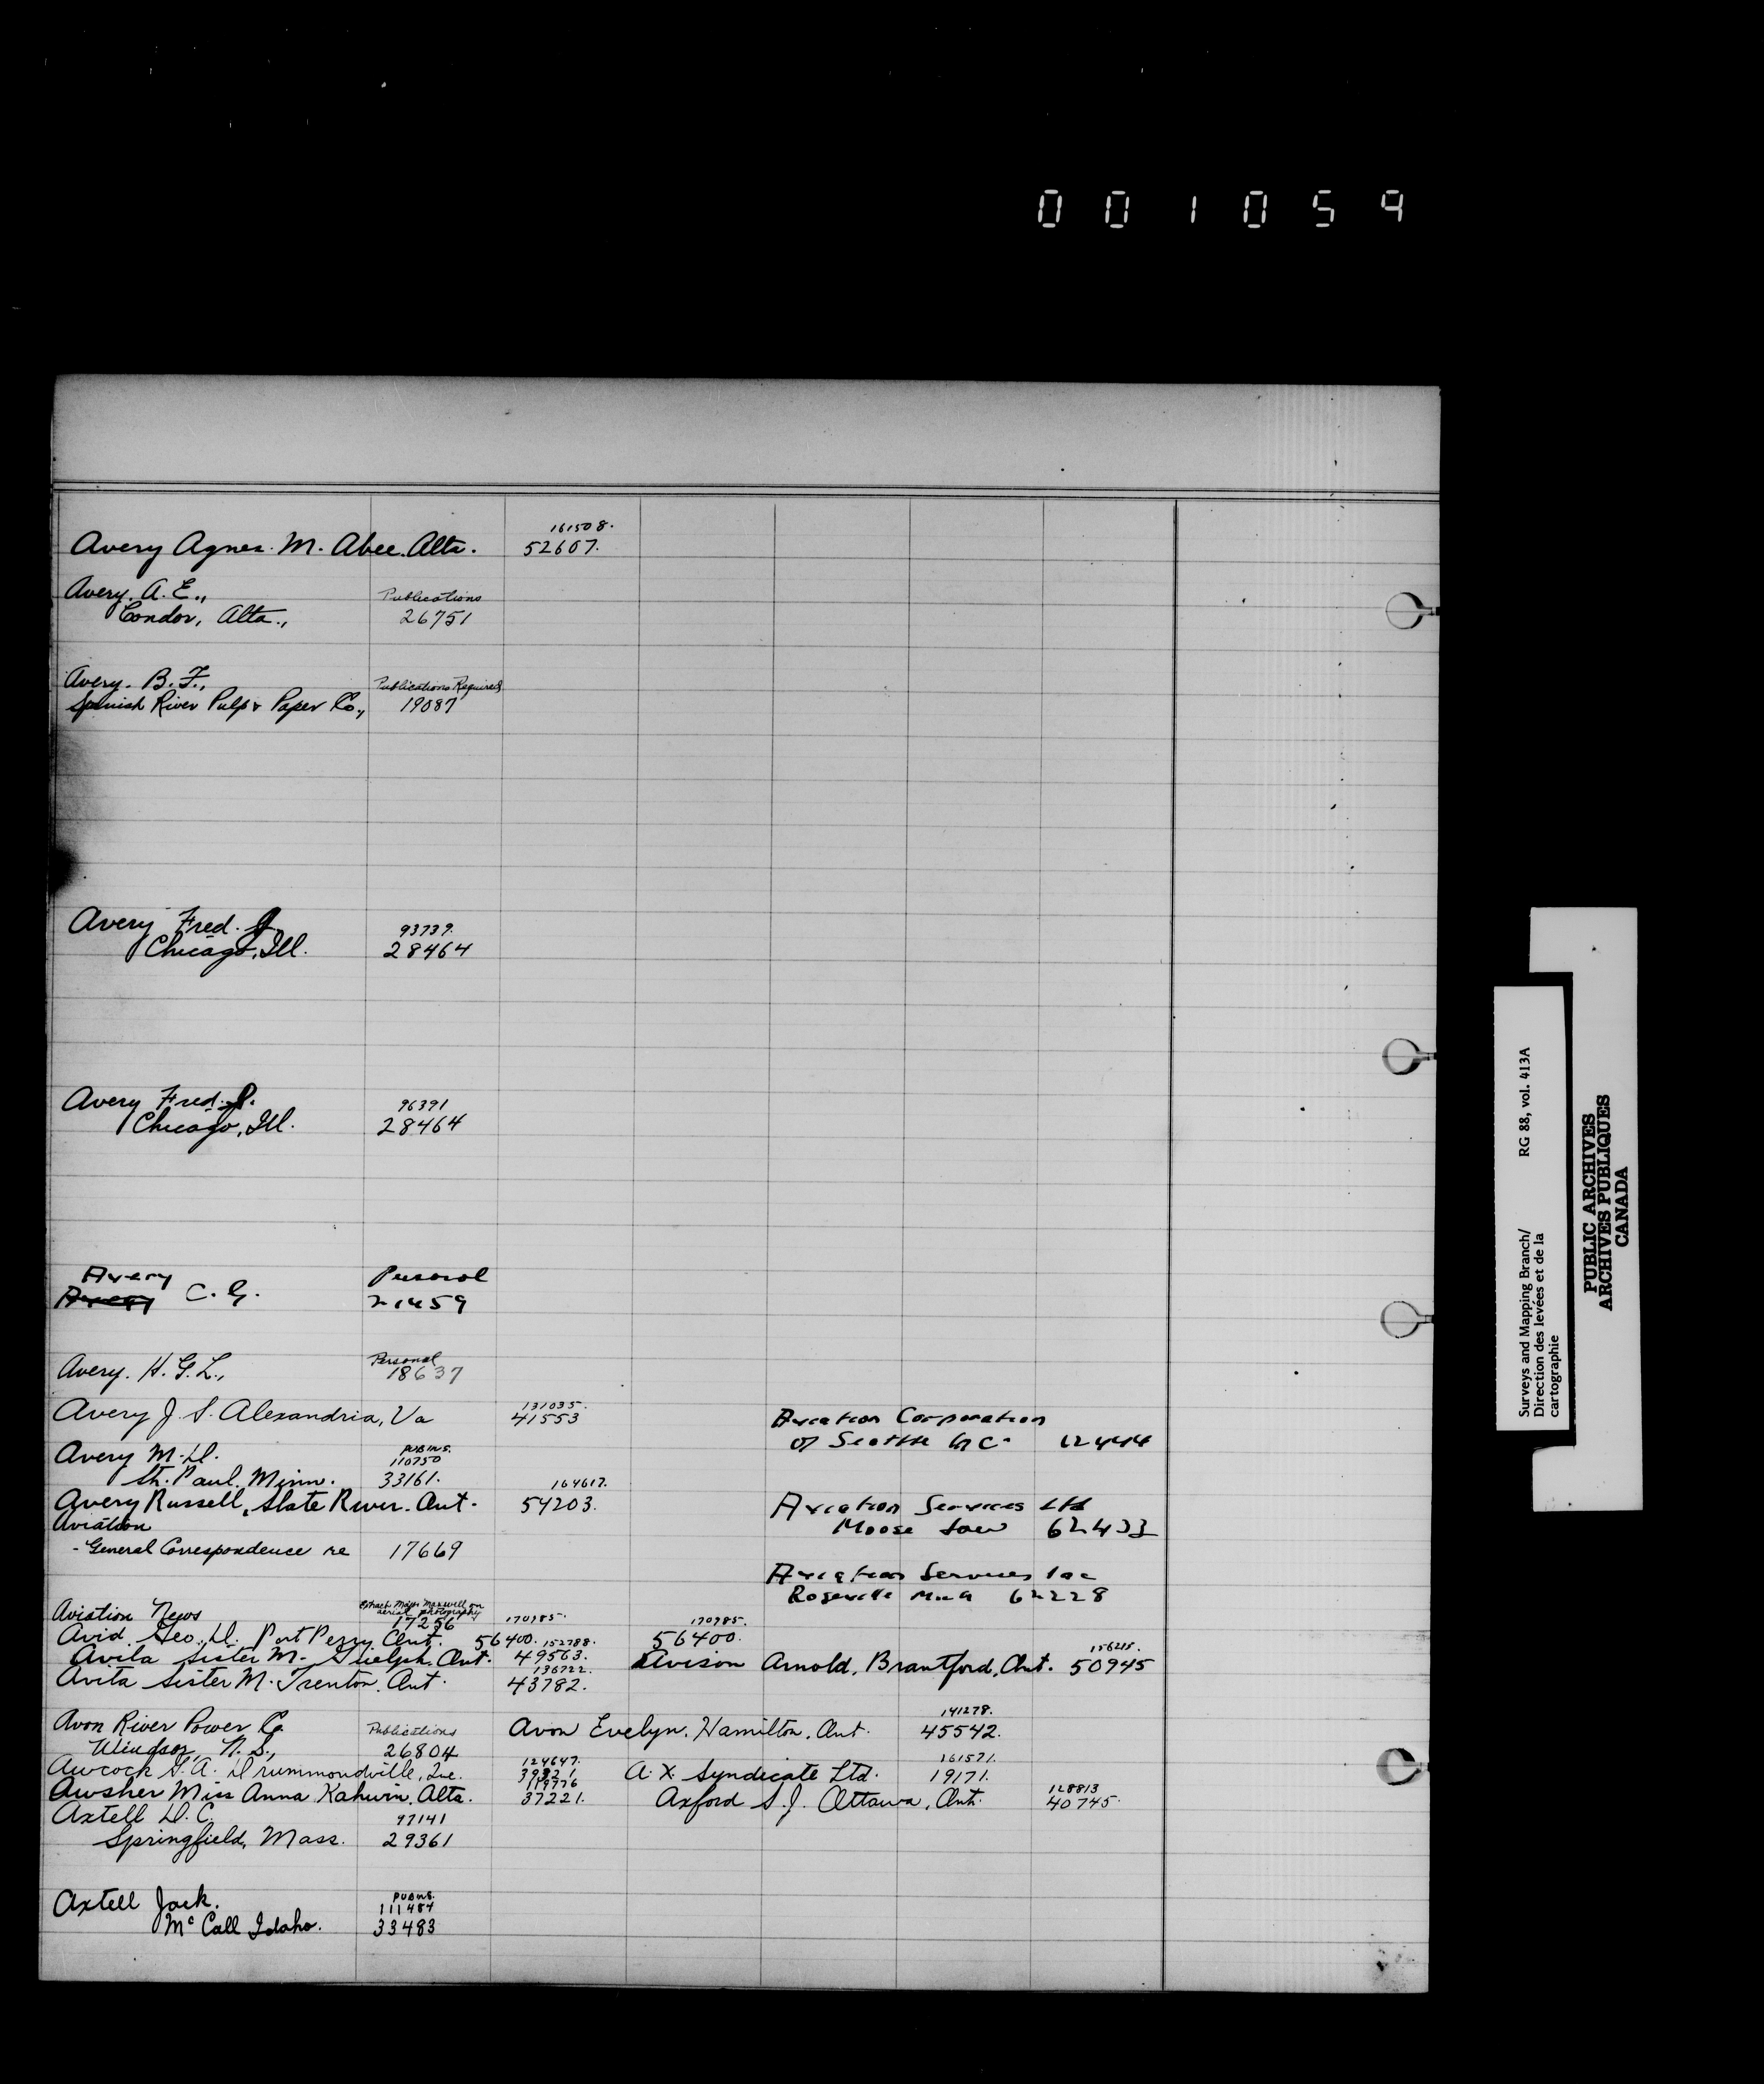 001059
161508.
Avery Agnes. M. Abee. Alta. 52607.
Avery. A. E., Publications
Condor, Alta., 26751
Avery. B. F., Publications Required
Spanish River Pulp & Paper Co., 19087
Avery Fred. J. 93739.
Chicago, Ill. 28464
Avery Fred. J. 96391
Chicago, Ill. 28464
Avery Personal
C. G. 21459
Avery. H. G. L., Personal
18637
131035.
Avery J. S. Alexandria, Va 41553
Aviation Corporation
of Seattle 62444
Avery M. D. PUBINS.
110750
St. Paul. Minn. 33161.
164617.
Avery Russell, Slate River. Ont. 54203.
Aviation Services Ltd
Moose Jaw 62433
Aviation
- General Correspondence re 17669
Aviation Services Inc
Roseville Minn 62228
Aviation News Extract Major Maxwell on
aerial photography
17256
170985. 170985.
Avid. Geo. D. Port Perry Ont. 56400. 56400.
152788.
Avila Sister M. Guelph. Ont. 49563.
156215.
Avison Arnold, Brantford, Ont. 50945
136722.
Avita Sister M. Trenton. Ont. 43782.
Avon River Power Co. Publications
Windsor, N. S., 26804
141278.
Avon Evelyn. Hamilton. Ont. 45542.
124647.
Awcock G. A. Drummondville, Que. 39321.
161571.
A. X. Syndicate Ltd. 19171.
119776
Awsher Miss Anna Kahwin. Alta. 37221.
128813
Axford S. J. Ottawa, Ont. 40745.
Axtell D. C. 97141
Springfield, Mass. 29361
Axtell Jack. PUBNS.
111484
McCall Idaho. 33483
Surveys and Mapping Branch/ RG 88, vol. 413A
Direction des levées et de la
cartographie
PUBLIC ARCHIVES
ARCHIVES PUBLIQUES
CANADA